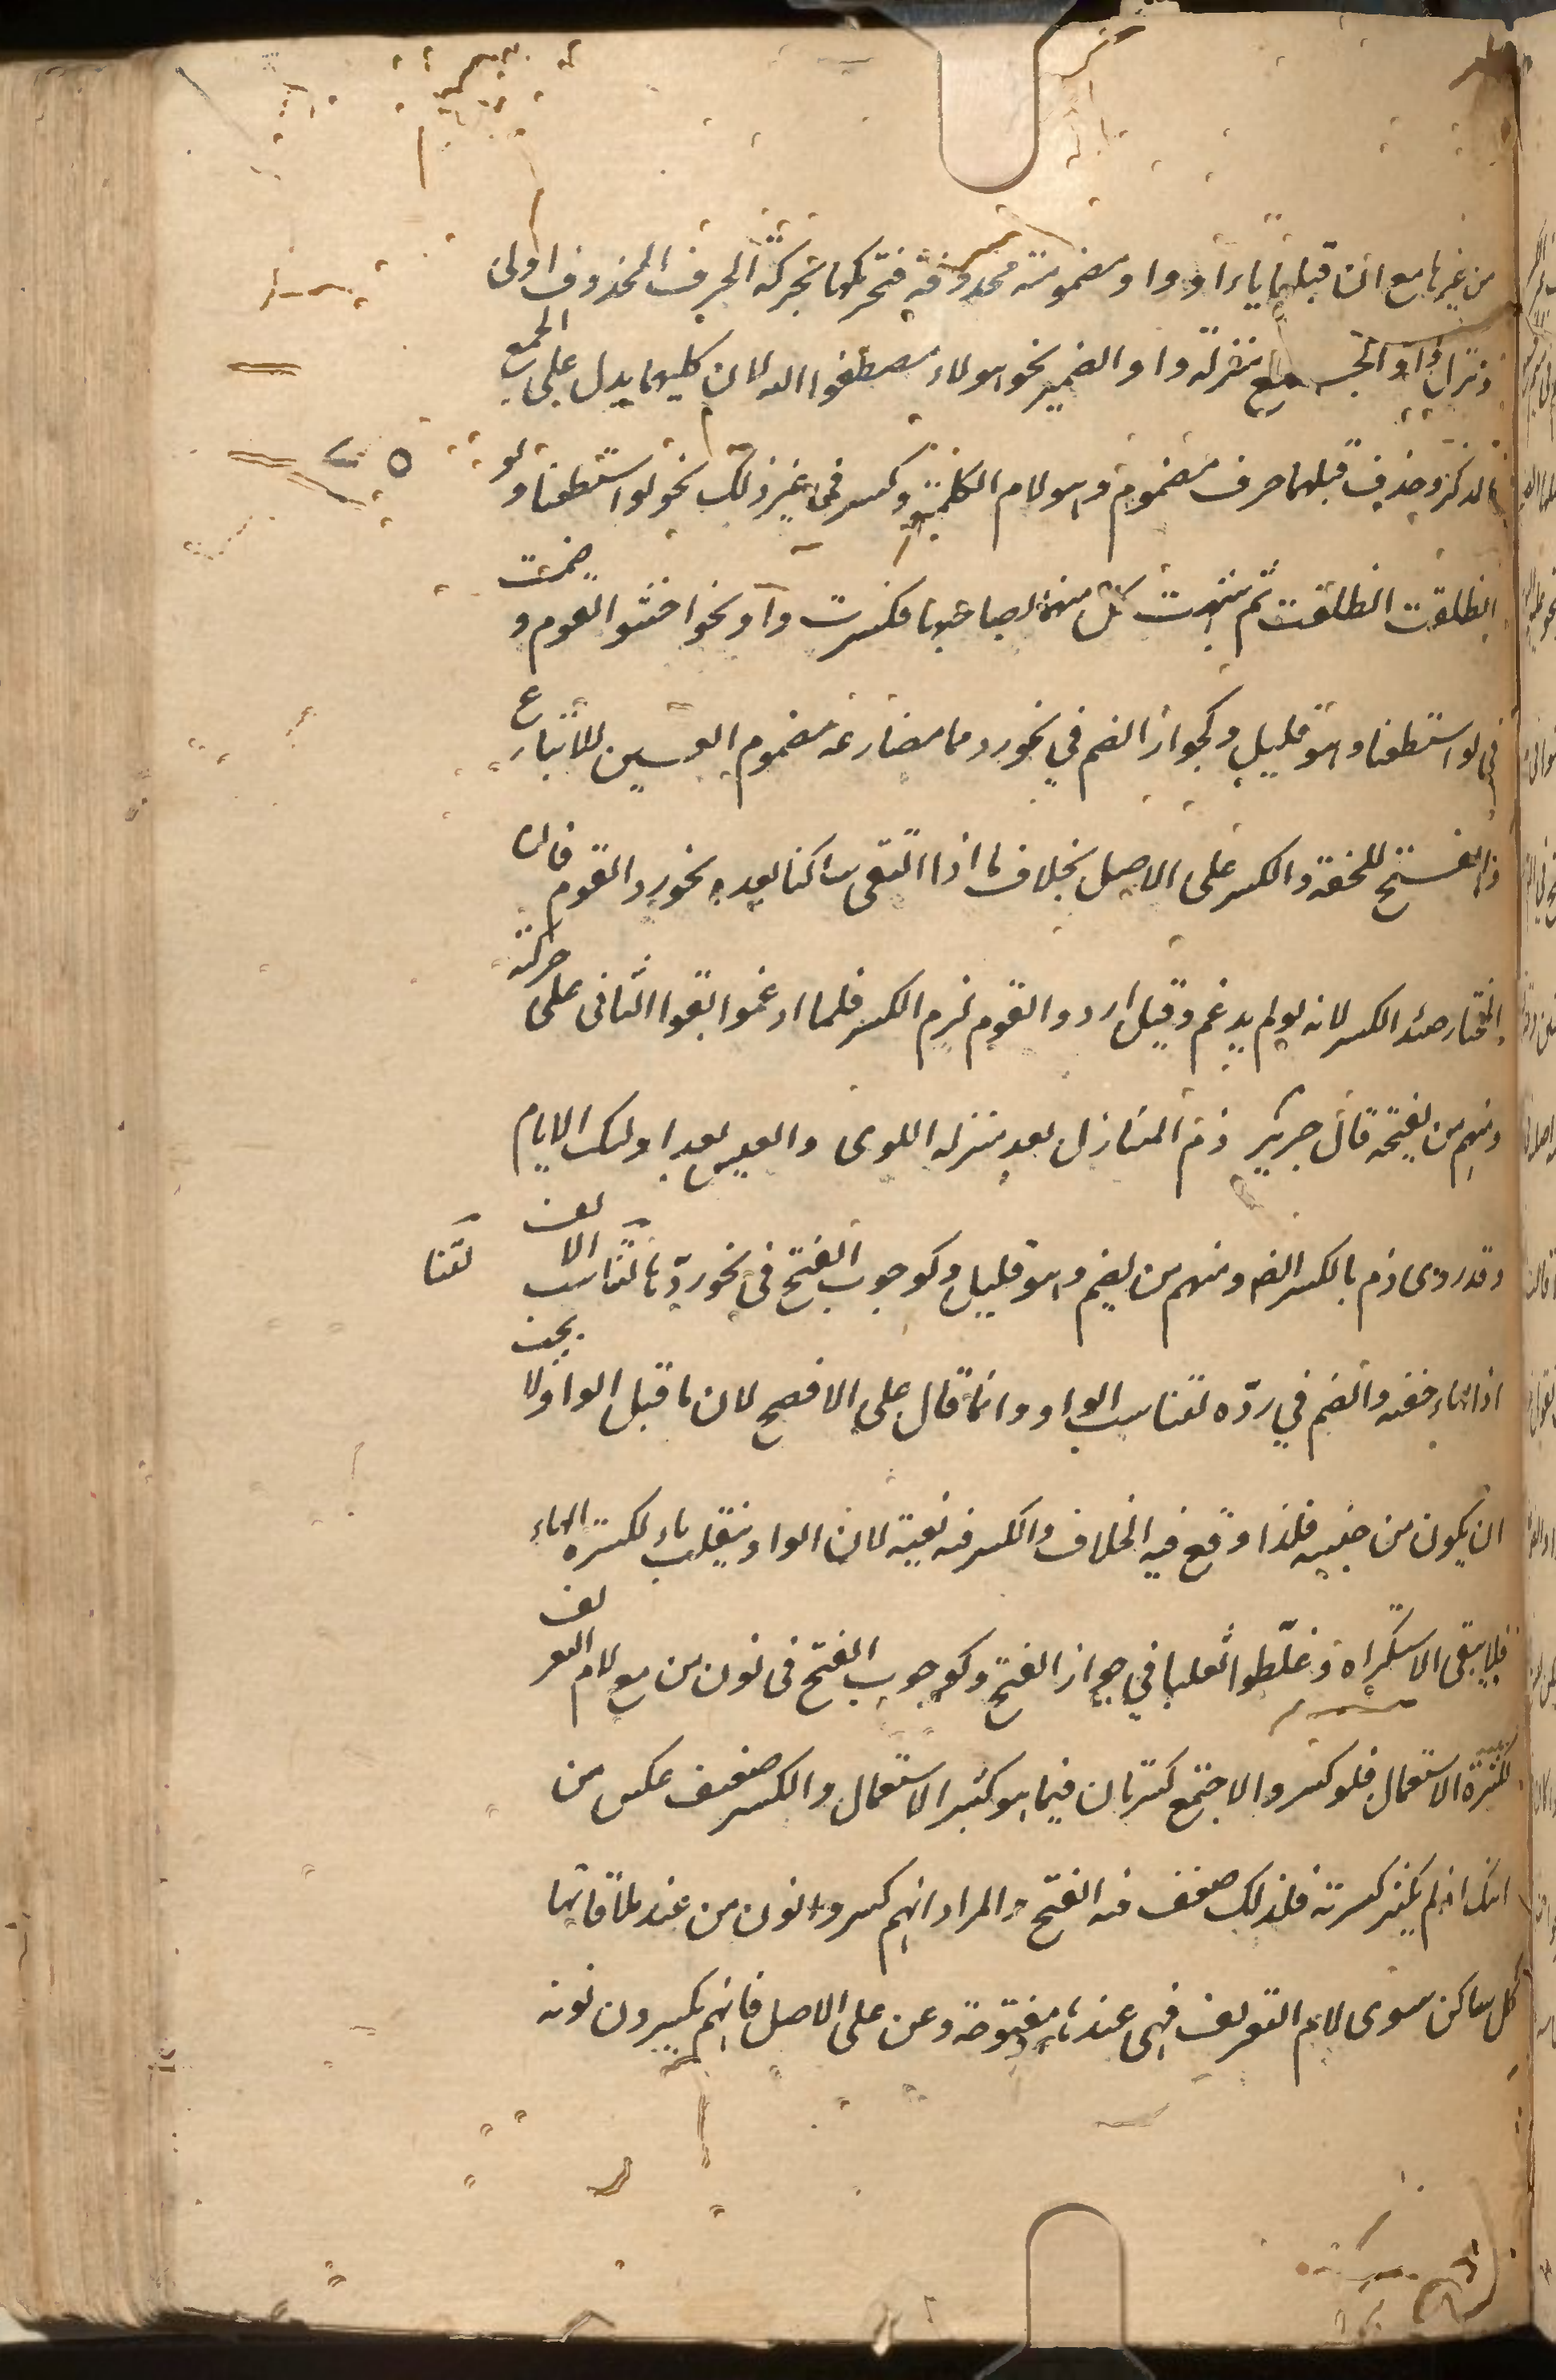 من غيرها مع ان قبلها ياء او واو مضمومة محذوفة فتحريكها بحركة الحرف المحذوف اولى
ونزل واو الجمع منزلة واو الضمير نحو هولاء مصطفوا الله لان كليهما يدل على الجمع
المذكر وحذف قبلهما حرف مضموم وهو لام الكلمة وكسر في غير ذلك نحو لو استطعنا ولو
انطلقت انطلقت ثم شبهت كل منهما لصاحبها فكسرت واو نحو اخشوا القوم وضمت
في لو استطعنا وهو قليل وكجواز الضم في نحو رد مما مضارعه مضموم العين للاتباع
والفتح للخفة والكسر على الاصل بخلاف ما اذا التقى ساكنا بعده نحو رد القوم فان
المختار حينئذ الكسر لانه لو لم يدغم وقيل اردد القوم لزم الكسر فلما ادغموا ابقوا الثاني على حركته
ومنهم من يفتحه قال جرير ذم المنازل بعد منزلة اللوى والعيش بعد اولئك الايام
وقد روى ذم بالكسر ايضا ومنهم من يضم وهو قليل وكوجوب الفتح في نحو ردها لتناسب الالف
لتنا
اذ الهاء خفية والضم في رده لتناسب الواو وانما قال على الافصح لان ما قبل الواو لا يجب
ان يكون من جنسه فلذا وقع فيه الخلاف والكسر فيه لغية لان الواو ينقلب ياء لكسرة الهاء
فلا يبقى الاستكراه وغلّطوا ثعلبا في جواز الفتح وكوجوب الفتح في نون من مع لام التعريف
لكثرة الاستعمال فلو كسروا لاجتمع كسرتان فيما هو كثير الاستعمال والكسر ضعيف عكس من
ابنك اذ لم يكثر كسرته فلذلك ضعف فيه الفتح والمراد انهم كسروا نون من عند ملاقاتها
كل ساكن سوى لام التعريف فهي عندها مفتوحة وعن على الاصل فانهم يكسرون نونه